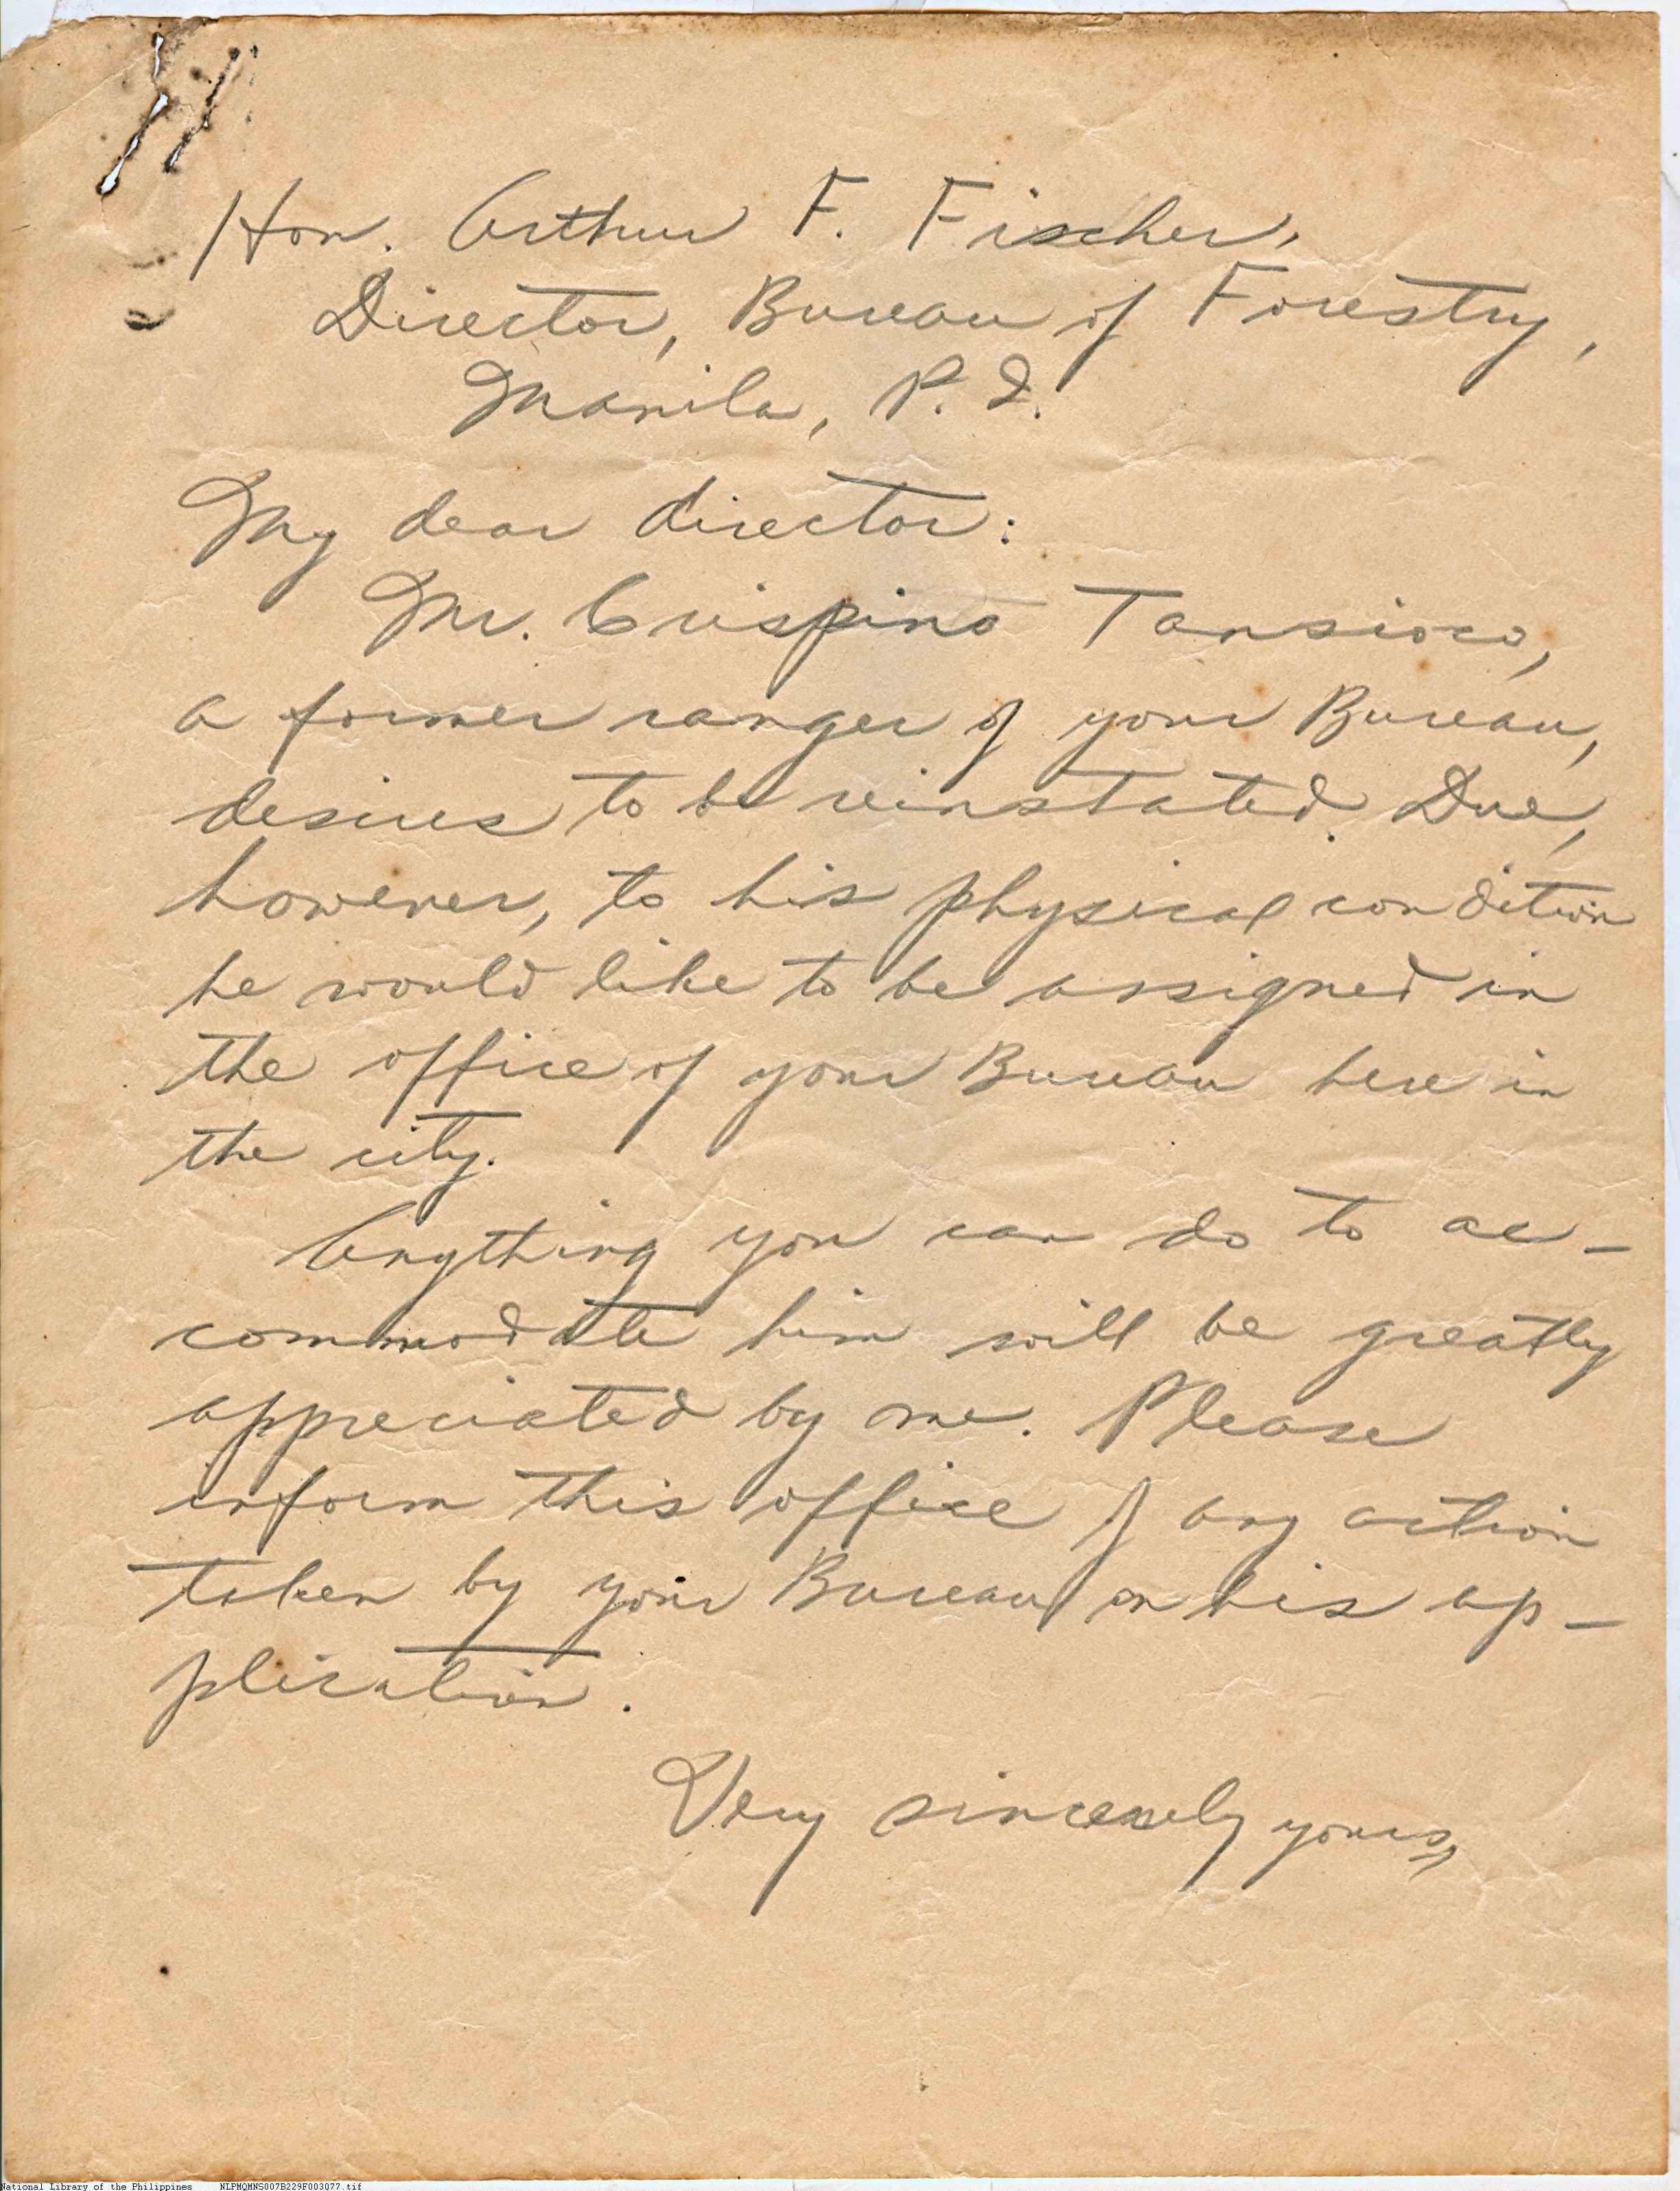 Hon. Arthur F. Fischer,
Director, Bureau of Forestry,
Manila, P. I.
My dear director:
Mr. Crispino Tansioco,
a former ranger of your Bureau,
desires to be reinstated. Due,
however, to his physical condition
he would like to be assigned in
the office of your Bureau here in
the city.
Anything you can do to ac-
commodate him will be greatly
appreciated by me. Please
inform this office of any action
taken by your Bureau on his ap-
plication.
Very sincerely yours,
National Library of the Philippines NLPMQMNS007B229F003077.tif